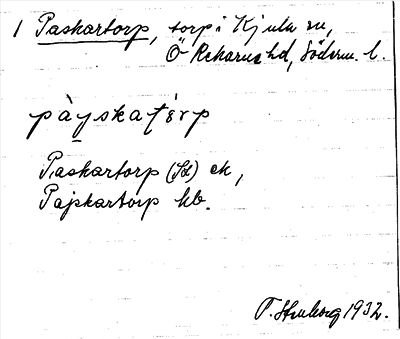 1 Paskartorp, torp i Kjula sn,
Ö Rekarne hd, Söderm. l.
pàyskatɛrp
Paskartorp (Sd) ek,
Pajskartorp hb.
1932.